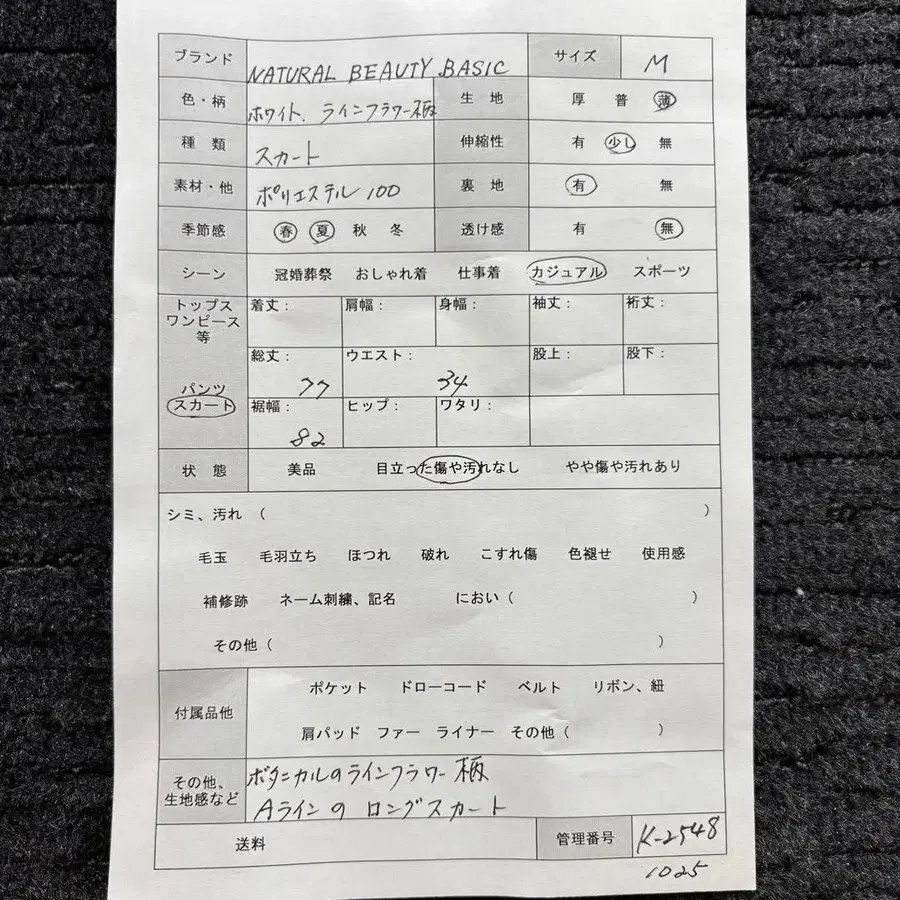 ブランド NATURAL BEAUTY BASIC サイズ M
色・柄 ホワイト、ラインフラワー柄 生地 厚 普 薄
種類 スカート 伸縮性 有 少し 無
素材・他 ポリエステル 100 裏地 有 無
季節感 春 夏 秋 冬 透け感 有 無
シーン 冠婚葬祭 おしゃれ着 仕事着 カジュアル スポーツ
トップス
ワンピース
等
着丈: 肩幅: 身幅: 袖丈: 裄丈:
パンツ
スカート
総丈: 77 ウエスト: 34 股上: 股下:
裾幅: 82 ヒップ: ワタリ:
状態 美品 目立った傷や汚れなし やや傷や汚れあり
シミ、汚れ ( )
毛玉 毛羽立ち ほつれ 破れ こすれ傷 色褪せ 使用感
補修跡 ネーム刺繍、記名 におい ( )
その他 ( )
付属品他
ポケット ドローコード ベルト リボン、紐
肩パッド ファー ライナー その他 ( )
その他、
生地感など
ボタニカルのラインフラワー柄
Aラインの ロングスカート
送料 管理番号 K-2548
1025